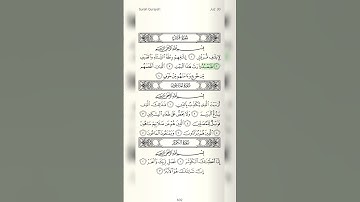 Surah Quraysh Juz 30
سورة قريش
بسم الله الرحمن الرحيم
لإيلاف قريش ١ إيلافهم رحلة الشتاء والصيف
٢ فليعبدوا رب هذا البيت ٣ الذي أطعمهم
من جوع وآمنهم من خوف ٤
سورة الماعون
بسم الله الرحمن الرحيم
أرأيت الذي يكذب بالدين ١ فذلك الذي
يدع اليتيم ٢ ولا يحض على طعام المسكين ٣
فويل للمصلين ٤ الذين هم عن صلاتهم ساهون
٥ الذين هم يراءون ٦ ويمنعون الماعون ٧
سورة الكوثر
بسم الله الرحمن الرحيم
إنا أعطيناك الكوثر ١ فصل لربك وانحر ٢
إن شانئك هو الأبتر ٣
602